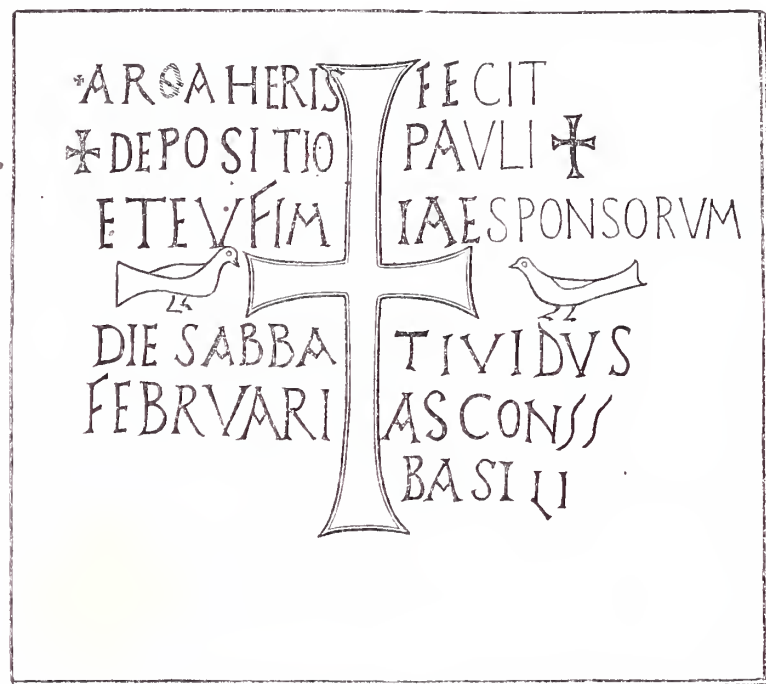 ✠ ARΘAHERIS FECIT
✠ DEPOSITIO PAVLI ✠
ETEVFIM IAESPONSORVM
DIE SABBA TIVIDVS
FEBRVARI ASCONSS
BASILI